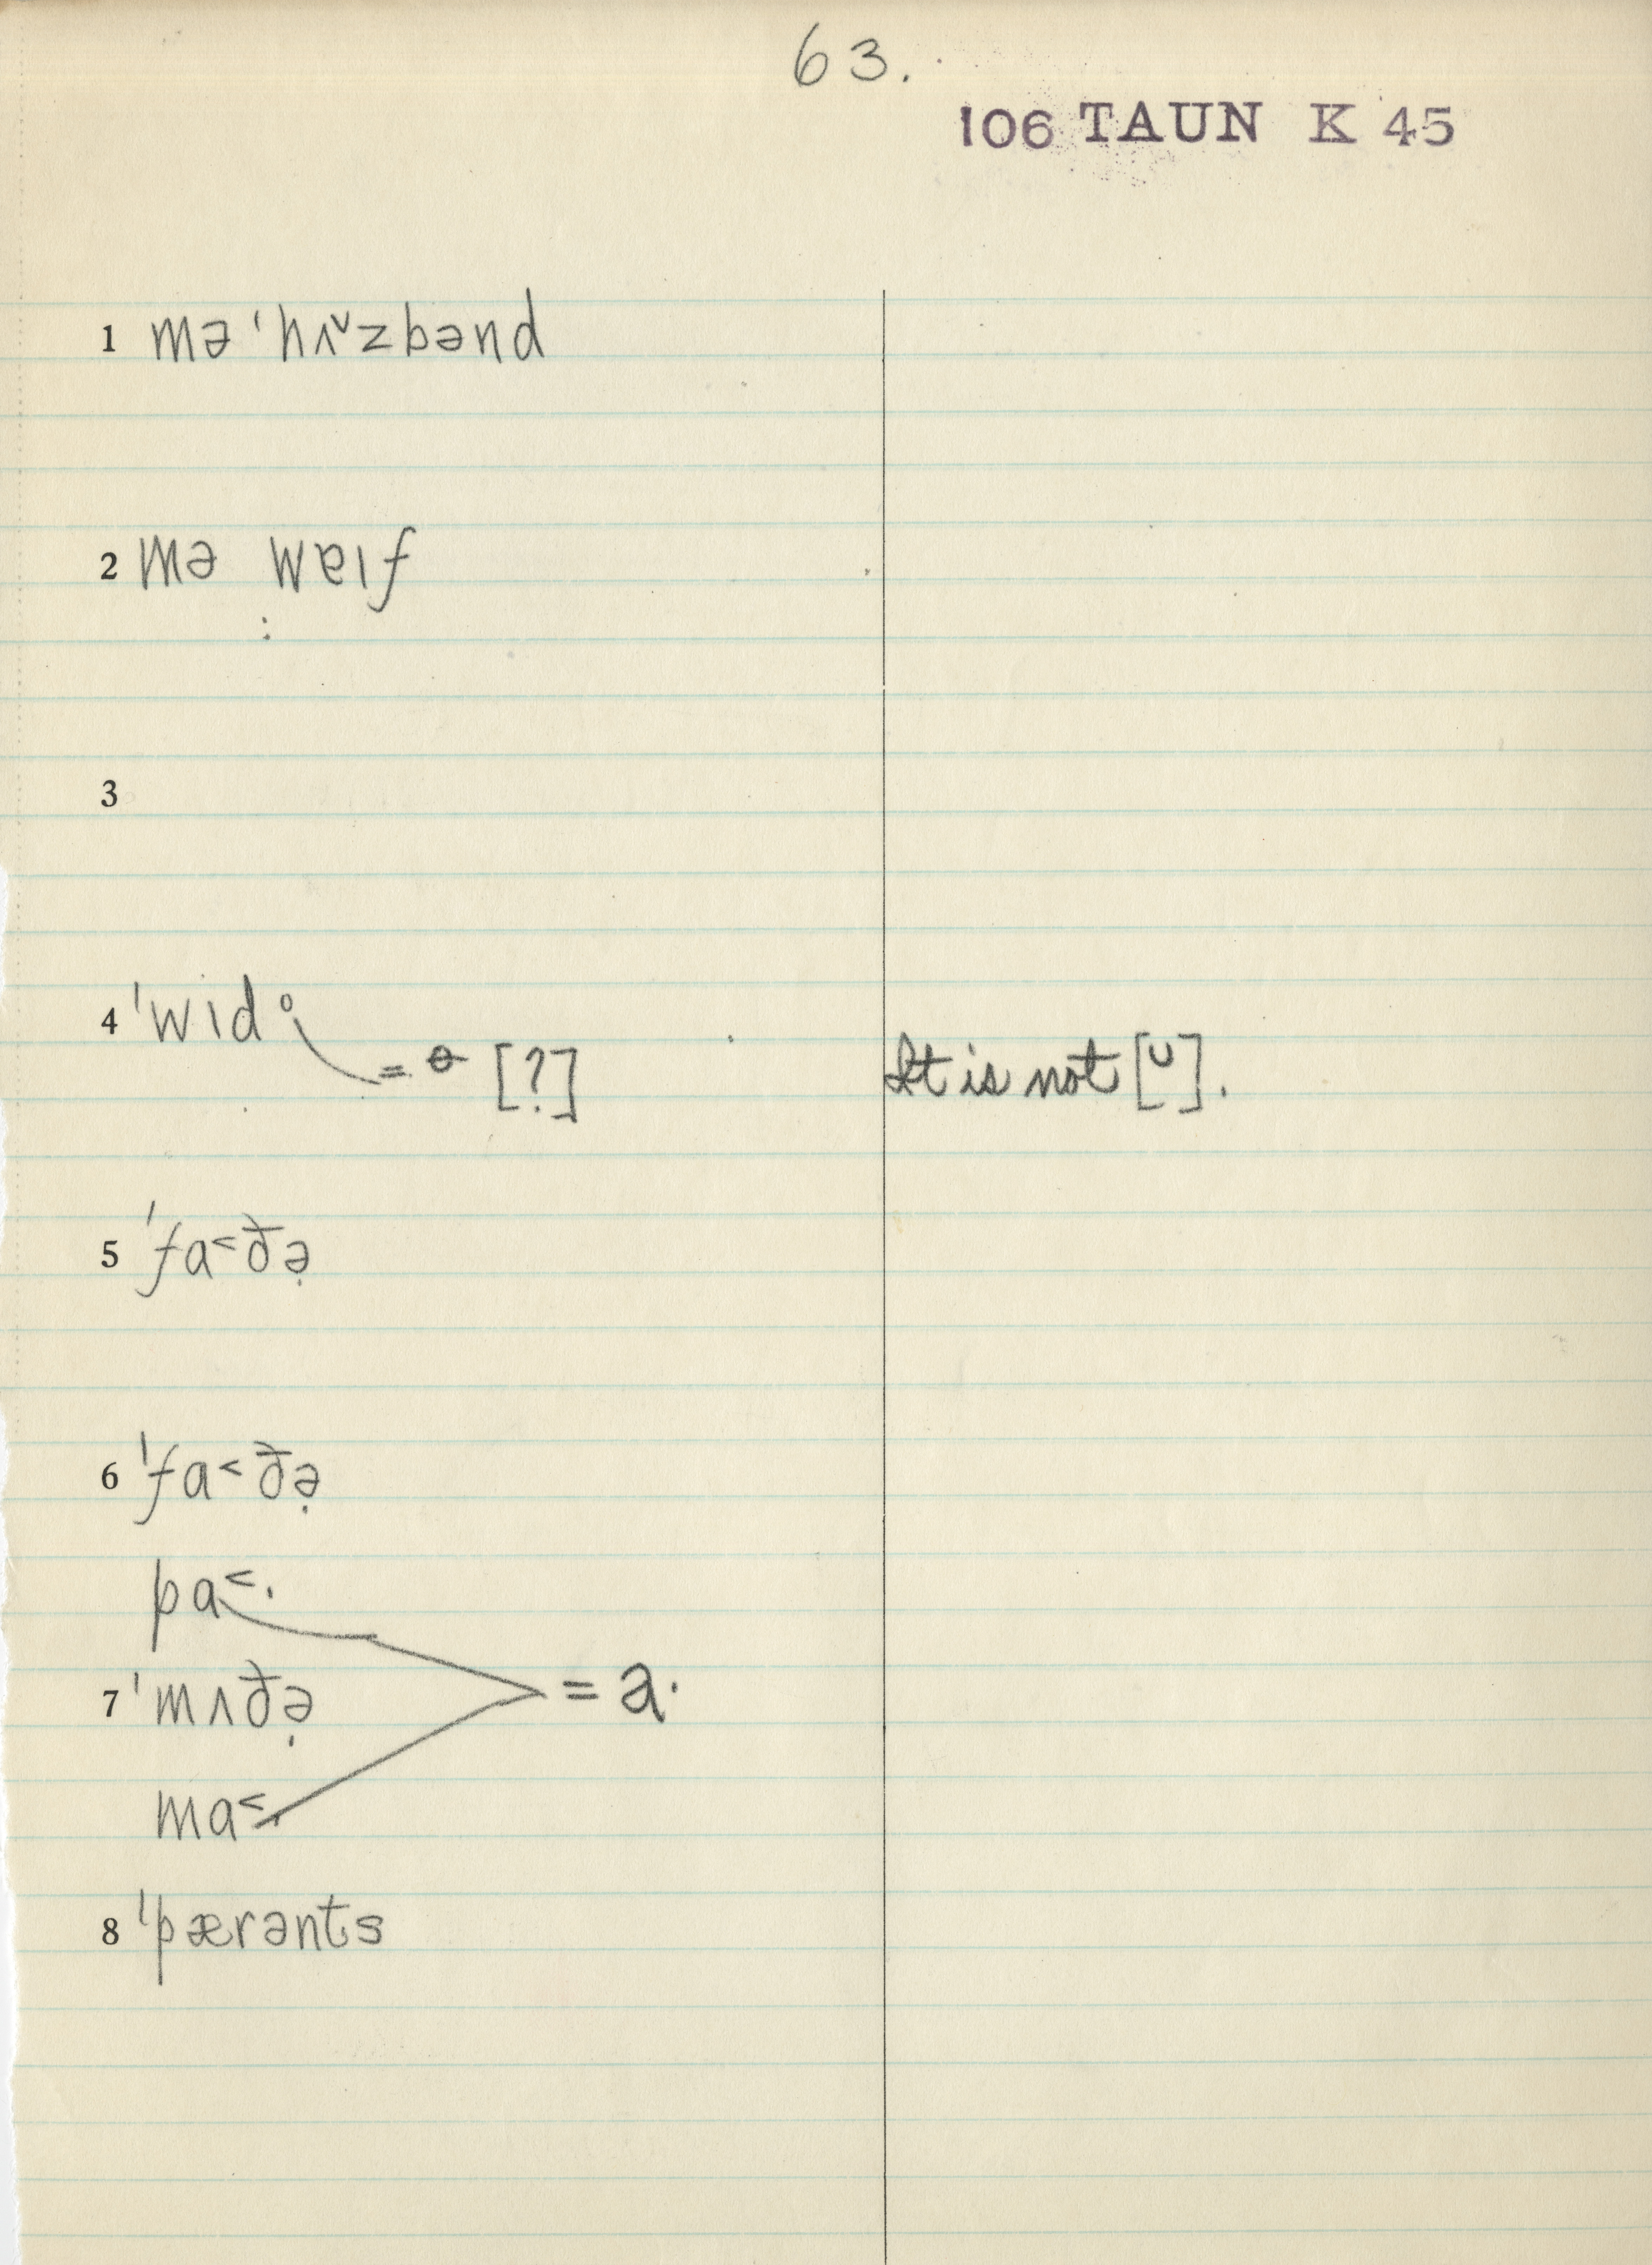 63.
106 TAUN K 45
1 mə ˈhʌ˅zbənd
2 mə wɐɪf
3
4 ˈwɪdᵒ
= ɵ [?] It is not [ᴜ].
5 ˈfa˂ðə̣
6 ˈfa˂ðə̣
pa˂·
7 ˈmʌðə̣ = a·
ma˂·
8 ˈpærənts